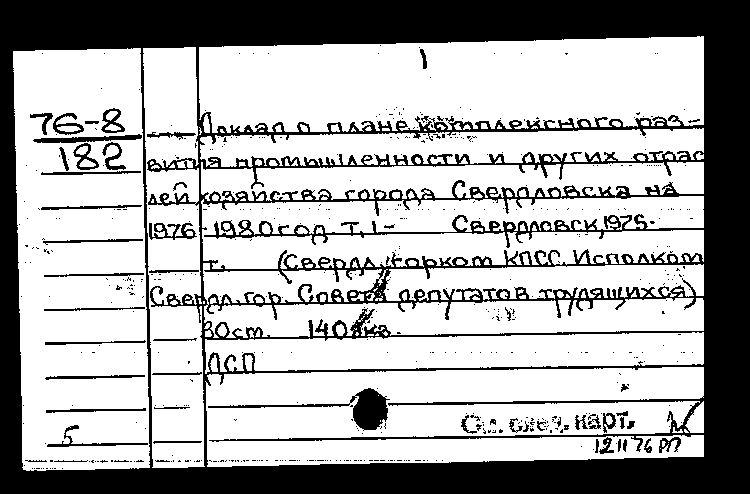 1
76-8
182
Доклад о плане комплексного раз-
вития промышленности и других отрас
лей хозяйства города Свердловска на
1976-1980 год Т. 1- Свердловск, 1975-
т. (Свердл. горком КПСС. Исполком
Свердл. гор. Совета депутатов трудящихся)
30см. 140 экз.
ДСП
См. след. карт.
5
12 11 76 РП